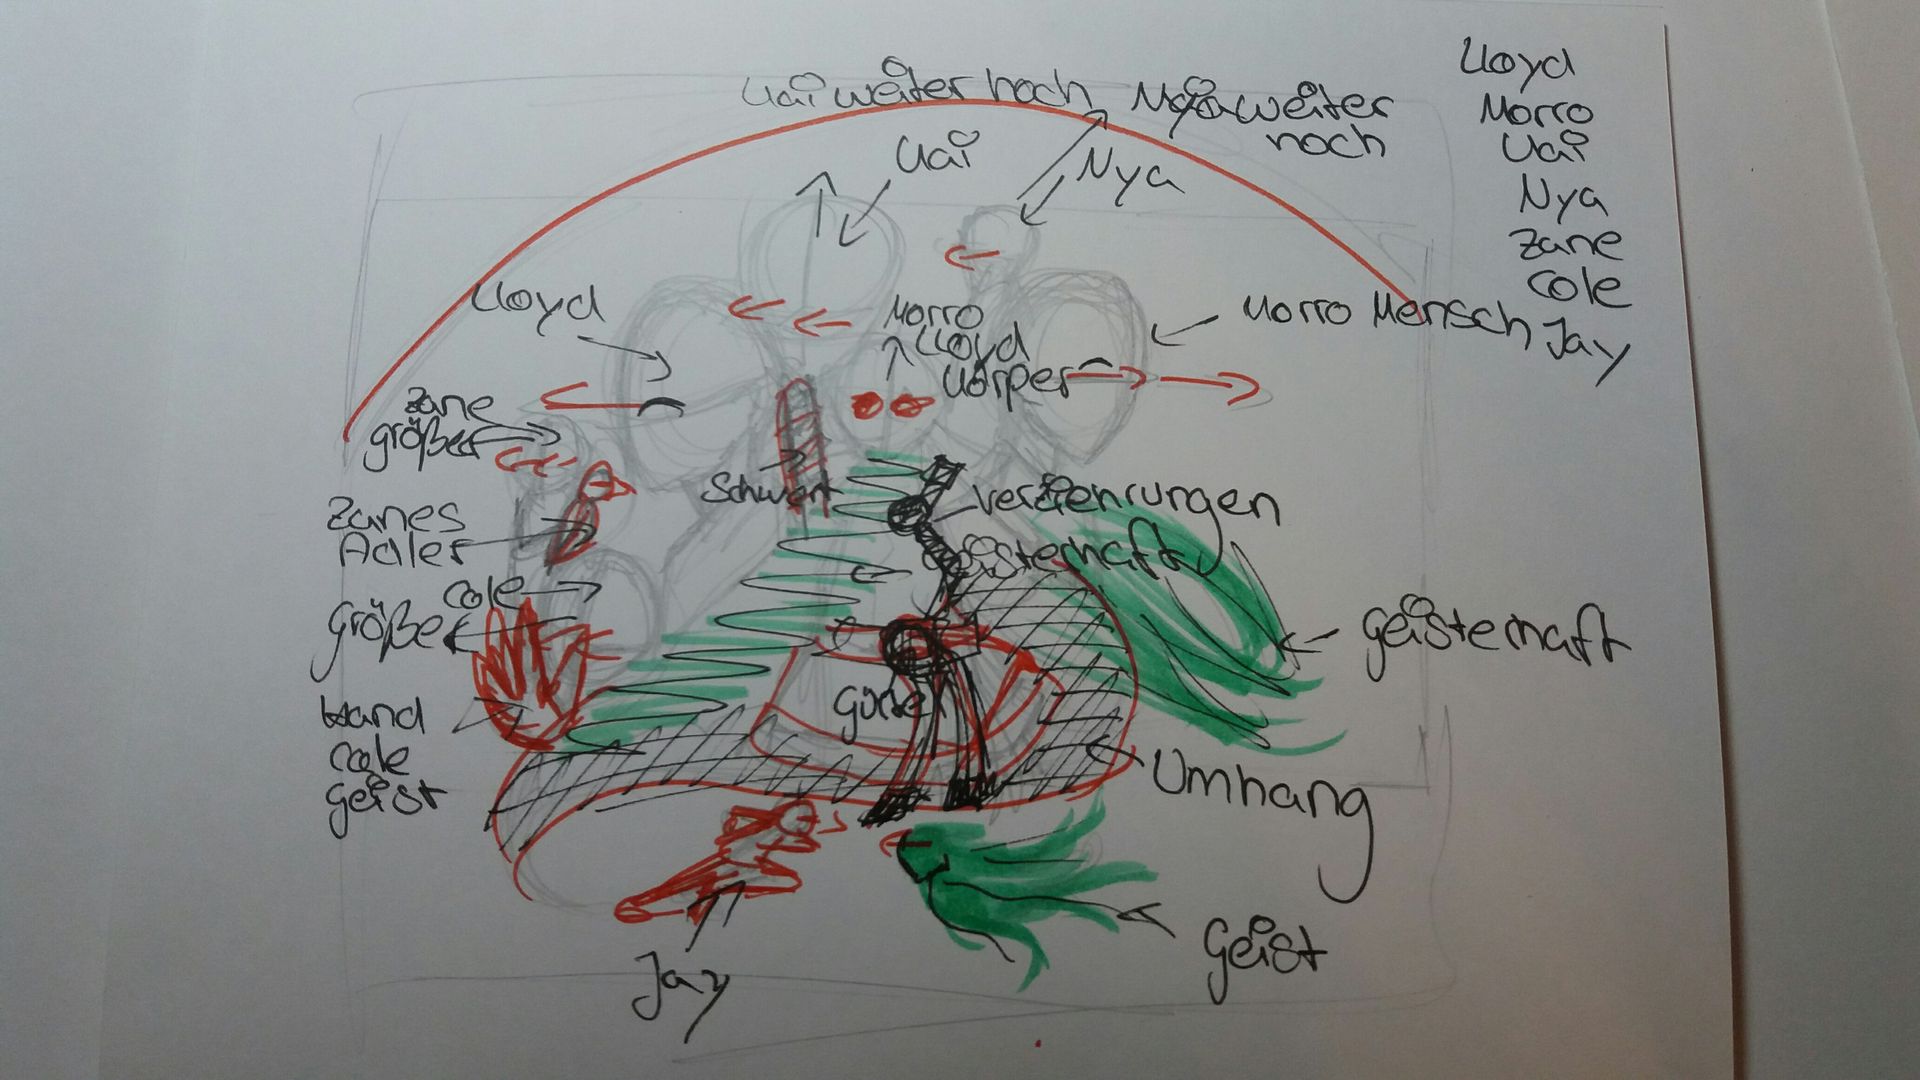 Kai weiter hoch
Nya weiter
hoch
Kai
Nya
Lloyd
Morro
Kai
Nya
Zane
Cole
Jay
Lloyd
Morro
Lloyd
Körper
Morro Mensch
Zane
größer
Schwert
Verzierungen
Zanes
Adler
geisterhaft
Cole
größer
geisterhaft
Hand
Cole
Geist
Gürtel
Umhang
Jay
Geist